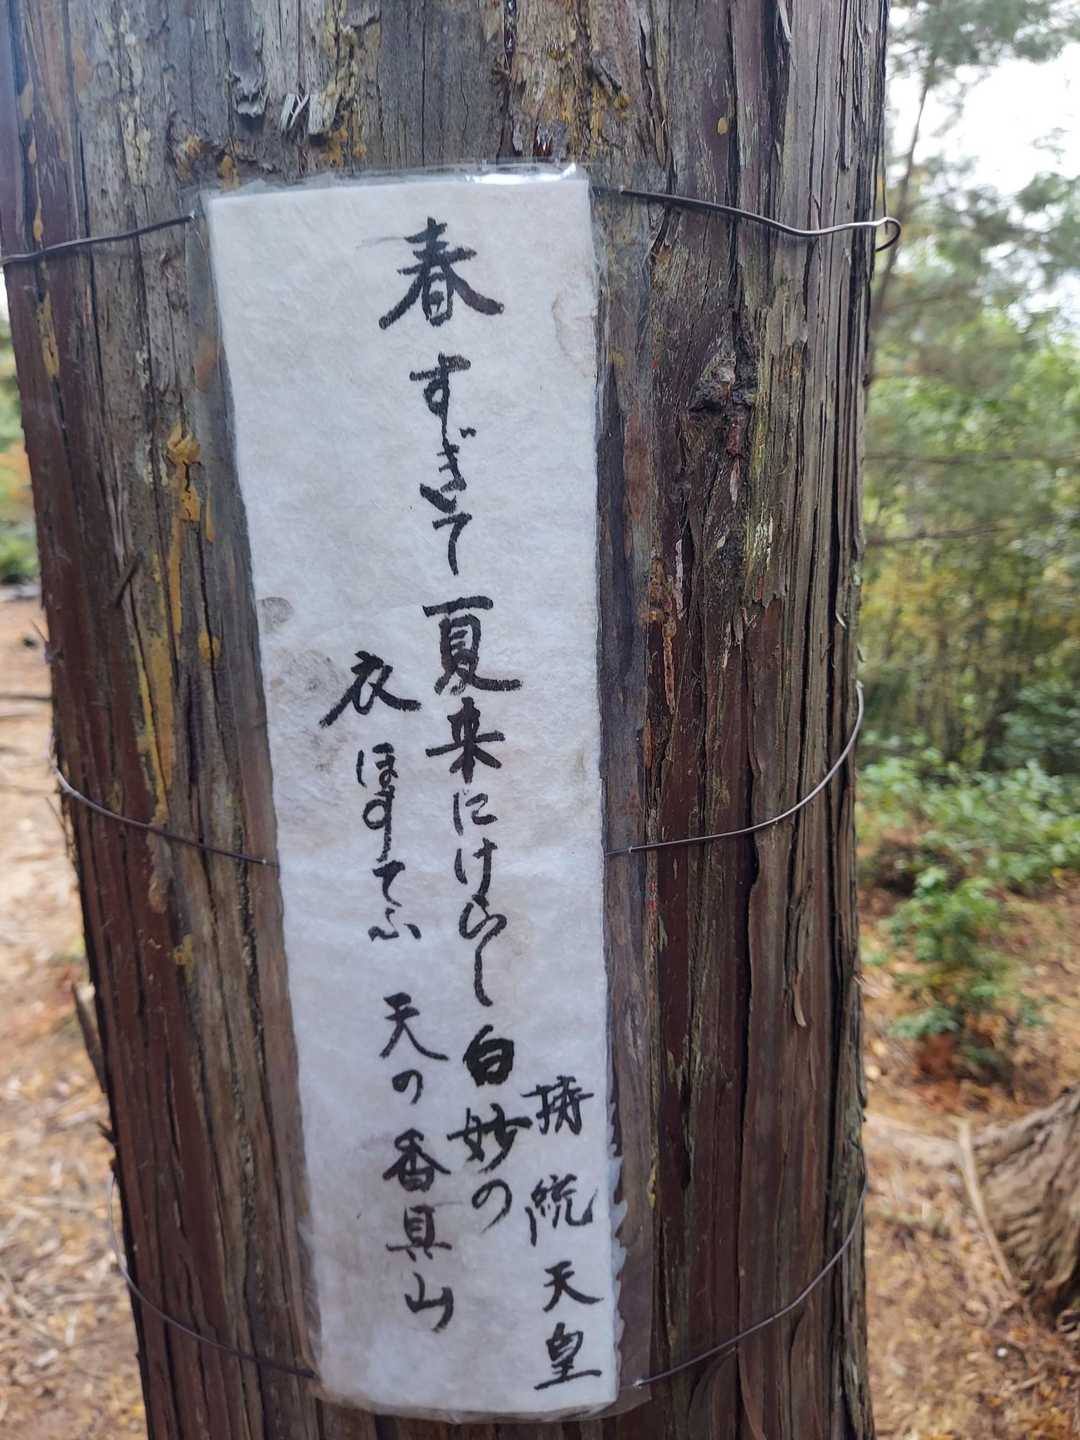 持統天皇
春すぎて夏来にけらし白妙の
衣ほすてふ天の香具山